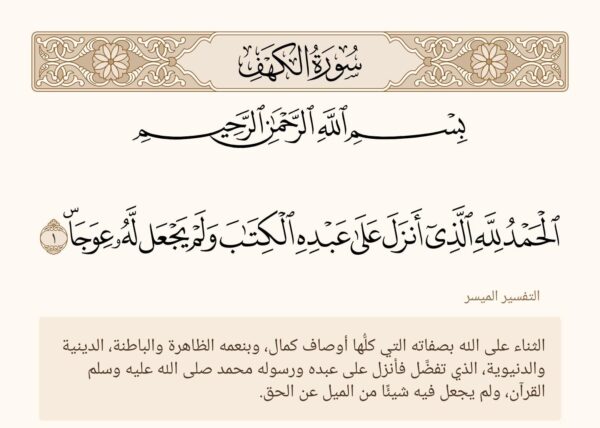 سُورَةُ الكَهْفِ
بِسْمِ ٱللَّهِ ٱلرَّحْمَٰنِ ٱلرَّحِيمِ
ٱلْحَمْدُ لِلَّهِ ٱلَّذِىٓ أَنزَلَ عَلَىٰ عَبْدِهِ ٱلْكِتَٰبَ وَلَمْ يَجْعَل لَّهُۥ عِوَجَاۜ ١
التفسير الميسر
الثناء على الله بصفاته التي كلُّها أوصاف كمال، وبنعمه الظاهرة والباطنة، الدينية
والدنيوية، الذي تفضَّل فأنزل على عبده ورسوله محمد صلى الله عليه وسلم
القرآن، ولم يجعل فيه شيئًا من الميل عن الحق.